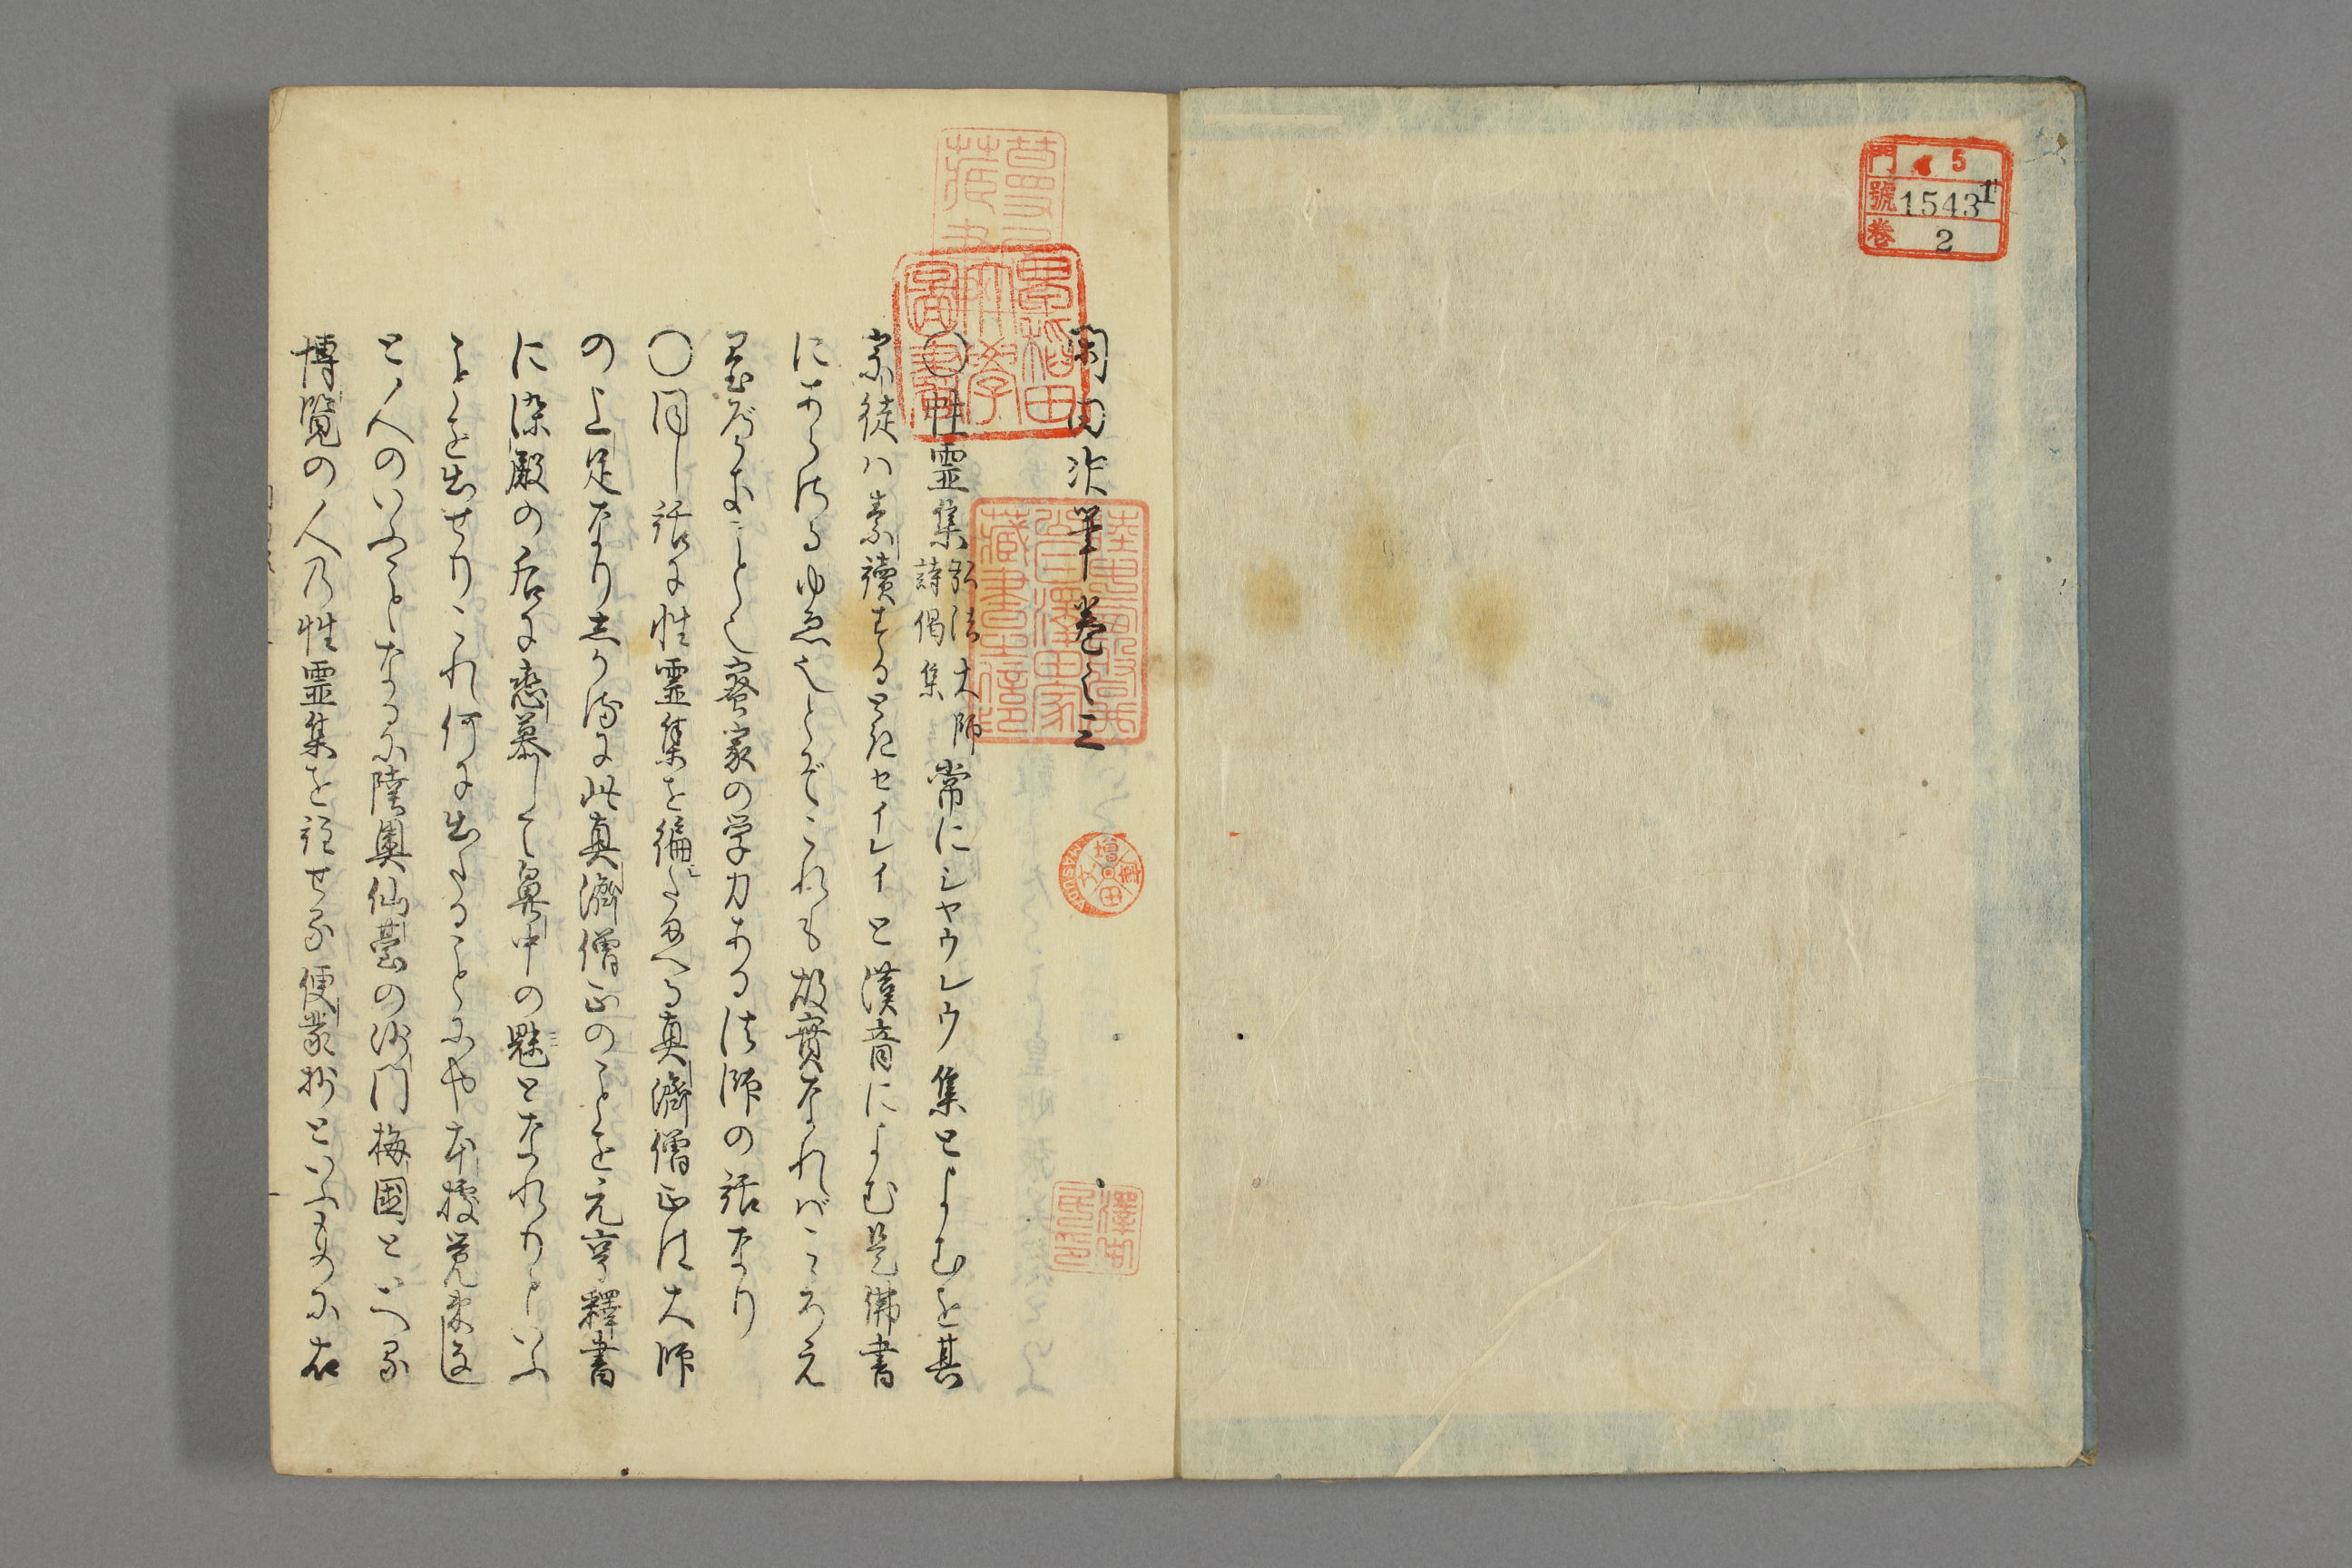 門 5
號 1543 1
巻 2
閑田次筆巻之三
○性霊集 弘法大師 詩偈集 常にシャウレウ集とよむを其
宗徒ハ素讀するときセイレイと漢音によむ是佛書
にあらぬゆゑとぞこれも故實なればこゝろえ
おくべきことゝ密家の学力ある法師の話なり
○同し話に性霊集を編たまへる真濟僧正は大師
の上足なりしかるに此真濟僧正のことを元亨釋書
に染殿の后に恋慕して鼻中の魅となれりといふ
ことを出せりこれ何に出たることにや本據覚束なし
と人のいふことなるに陸奥仙臺の沙門梅國といへる
博覧の人乃性霊集を註せる便蒙抄といふものに右
早稲田大學圖書
増田 MASUDA
澤田